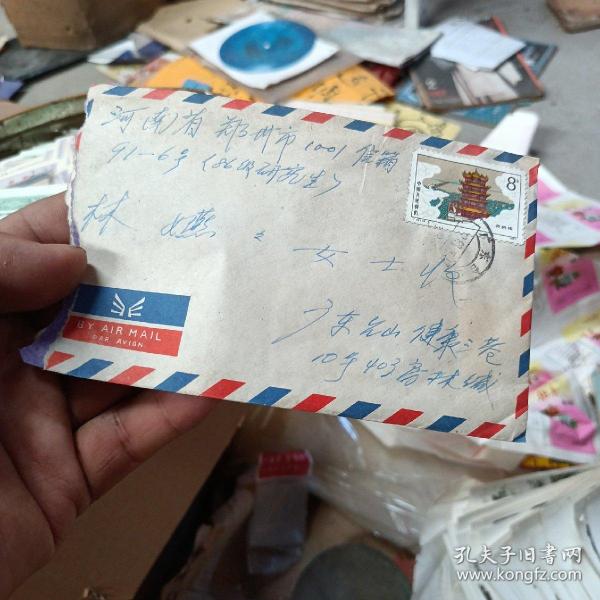 河南省 郑州市 1001 信箱
91-6号 (86级研究生)
林 燕 女士 收
广东 佛山 健康三巷
10号 403 高林缄
8
中国人民邮政
黄鹤楼
BY AIR MAIL
PAR AVION
孔夫子旧书网
www.kongfz.com